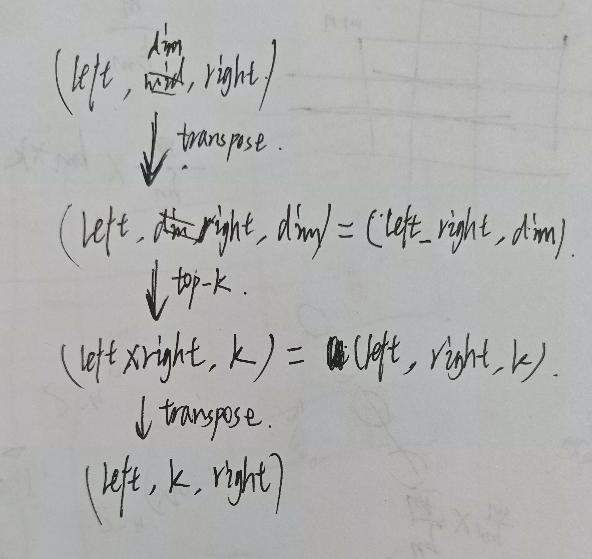 dim
(left, mid, right)
transpose.
(left, dim right, dim) = (left_right, dim).
top-k.
(left x right, k) = (left, right, k).
transpose.
(left, k, right)